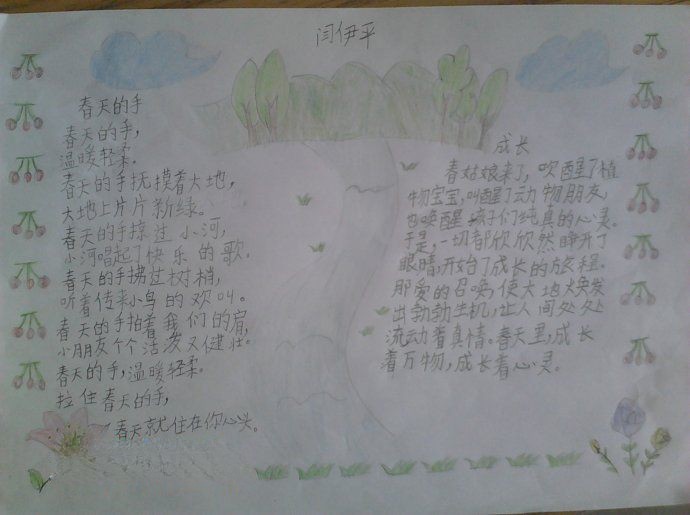 闫伊平
春天的手
春天的手，
温暖轻柔。
春天的手抚摸着大地，
大地上片片新绿。
春天的手掠过小河，
小河唱起了快乐的歌。
春天的手拂过树梢，
听着传来小鸟的欢叫。
春天的手拍着我们的肩，
小朋友个个活泼又健壮。
春天的手，温暖轻柔。
拉住春天的手，
春天就住在你心头。
成长
春姑娘来了，吹醒了植
物宝宝，叫醒了动物朋友，
也唤醒孩子们纯真的心灵。
于是，一切都欣欣然睁开了
眼睛，开始了成长的旅程。
那爱的召唤，使大地焕发
出勃勃生机，让人间处处
流动着真情。春天里，成长
着万物，成长着心灵。